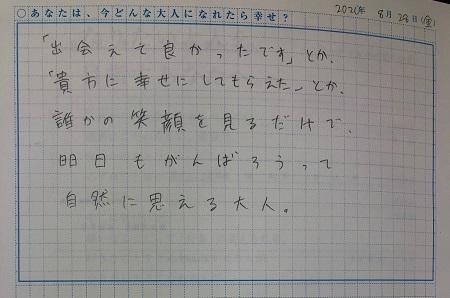 ○あなたは、今どんな大人になれたら幸せ？ 2020年 8月 28日(金)
「出会えて良かったです」とか、
「貴方に幸せにしてもらえた」とか、
誰かの笑顔を見るだけで、
明日もがんばろうって
自然に思える大人。